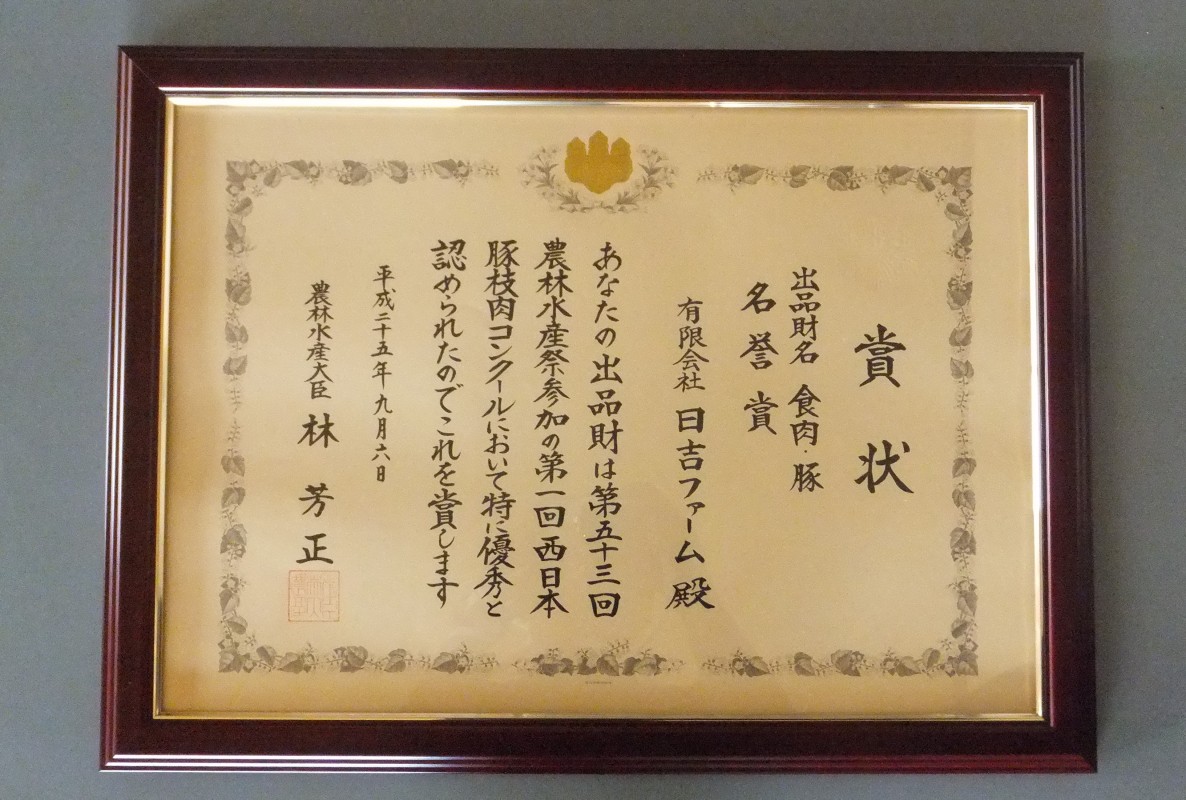 賞状
出品財名 食肉・豚
名誉賞
有限会社 日吉ファーム 殿
あなたの出品財は第五十三回
農林水産祭参加の第一回西日本
豚枝肉コンクールにおいて特に優秀と
認められたのでこれを賞します
平成二十五年九月六日
農林水産大臣 林 芳正